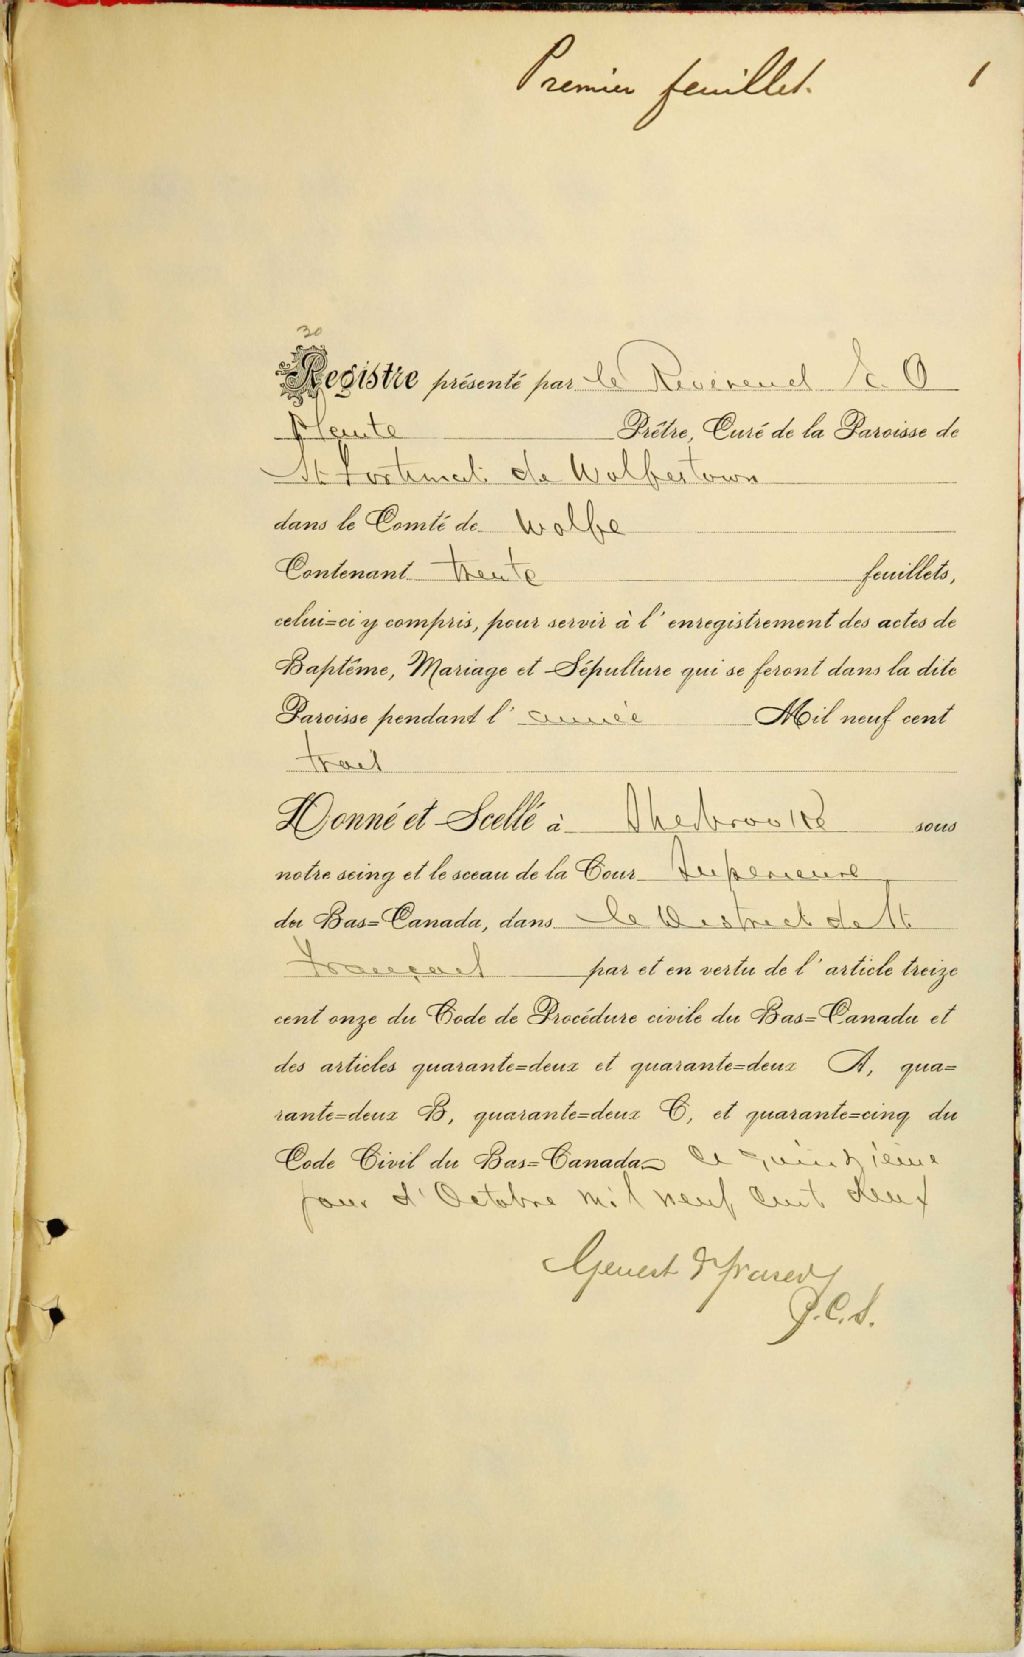 Premier feuillet. 1
30
Registre présenté par le Révérend E. O
Plante Prêtre, Curé de la Paroisse de
St Fortunat de Wolfestown
dans le Comté de Wolfe
Contenant trente feuillets,
celui=ci y compris, pour servir à l'enregistrement des actes de
Baptême, Mariage et Sépulture qui se feront dans la dite
Paroisse pendant l'année Mil neuf cent
trois
Donné et Scellé à Sherbrooke sous
notre seing et le sceau de la Cour Supérieure
du Bas=Canada, dans le District de St
François par et en vertu de l'article treize
cent onze du Code de Procédure civile du Bas=Canada et
des articles quarante=deux et quarante=deux A, qua=
rante=deux B, quarante=deux C, et quarante=cinq du
Code Civil du Bas=Canada ce quinzième
jour d'Octobre mil neuf cent deux
Genest & Fraser
P.C.S.